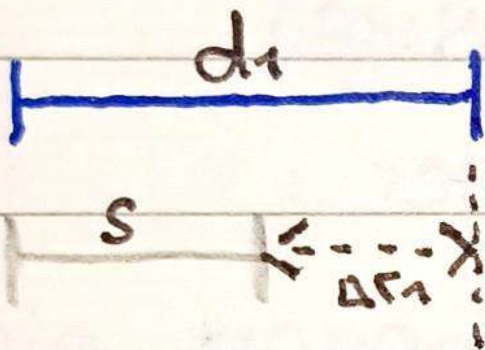 d1
S
Δr1